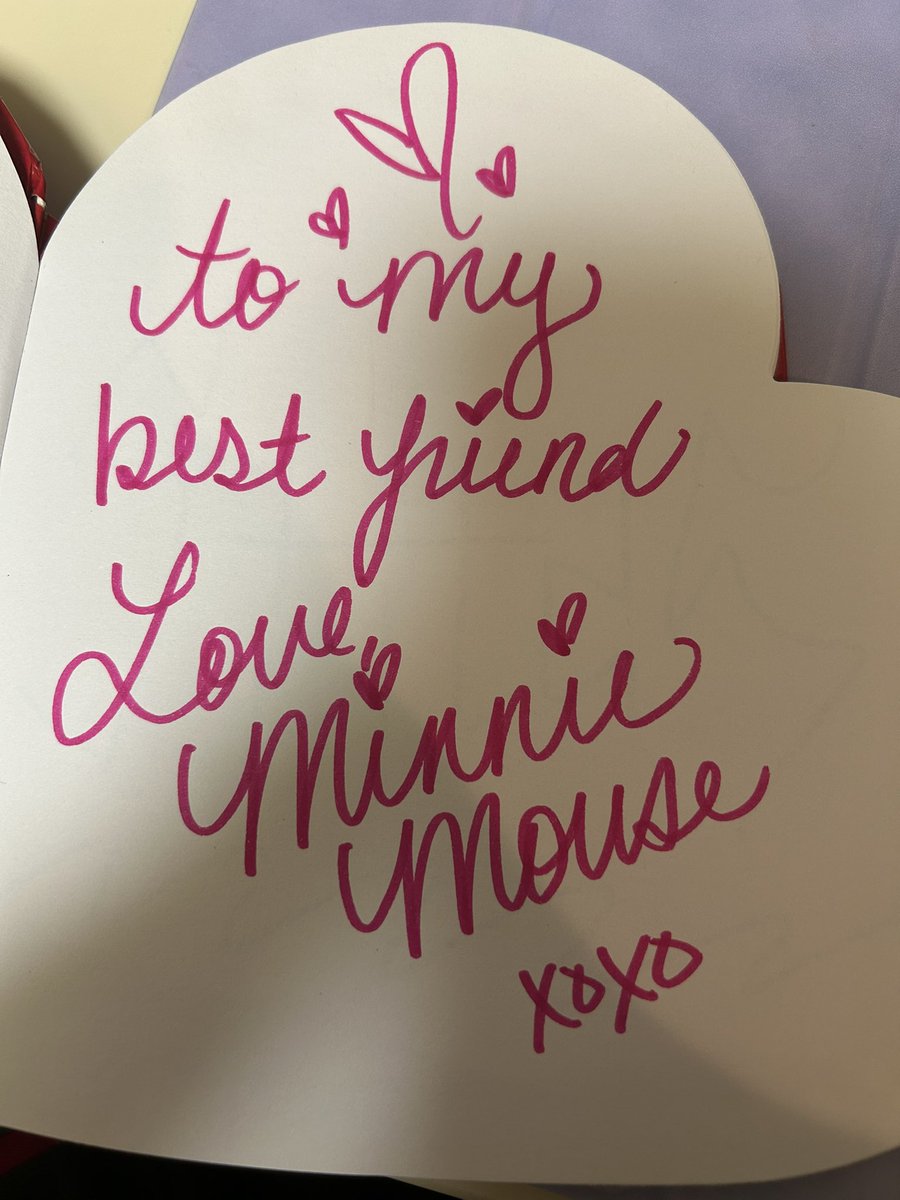 to my
best friend
Love,
Minnie
Mouse
xoxo